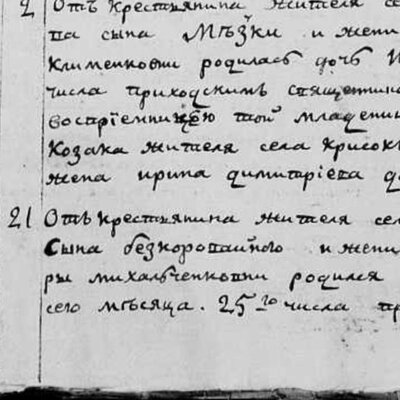 2 Отъ крестьянина жителя се
па сына Мѣзки и жени
Клименковни родилась дочь
числа приходскимъ священико
воспріемницею той младени
козака жителя села Крисок
жена ирина димитріева до
21 Отъ крестьянина жителя сел
Сына безкоровайного и жени
ры михальченковни родился
сего мѣсяца. 25го числа пр